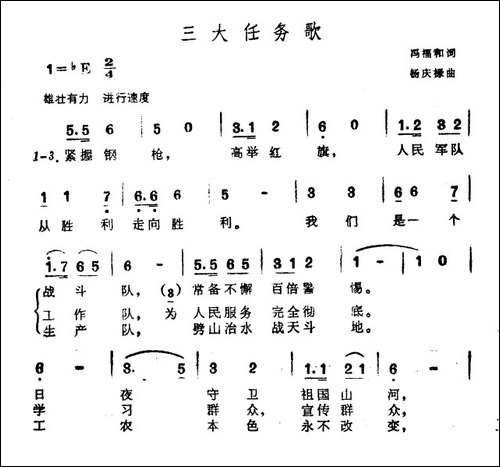 三大任务歌
冯福和词
1=♭E 2/4
杨庆椽曲
雄壮有力 进行速度
5.5 6 | 5 0 | 3.1 2 | 6 0 | 1.2 32 |
1-3.紧握钢枪，高举红旗，人民军队
1 1 7 | 6.6 6 | 5 - | 3 3 | 66 7 |
从胜利走向胜利。我们是一个
1.7 65 | 6 - | 5.5 65 | 312 | 1 - | 10 |
战斗队，(3)常备不懈百倍警惕。
工作队，为人民服务完全彻底。
生产队，劈山治水战天斗地。
6 - | 3. 5 | 3 2 | 1.1 21 | 6 - |
日夜守卫祖国山河，
学习群众，宣传群众，
工农本色永不改变，